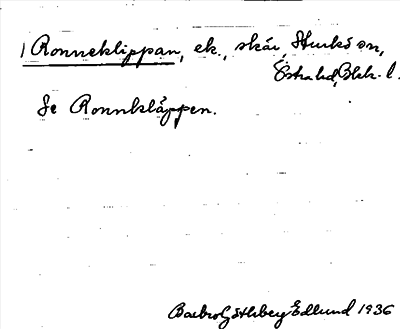 Ronneklippan, ek., skär, Sturkö sn,
Östra hd, Blek. l.
Se Ronnkläppen.
Barbro Göthberg Edlund 1936